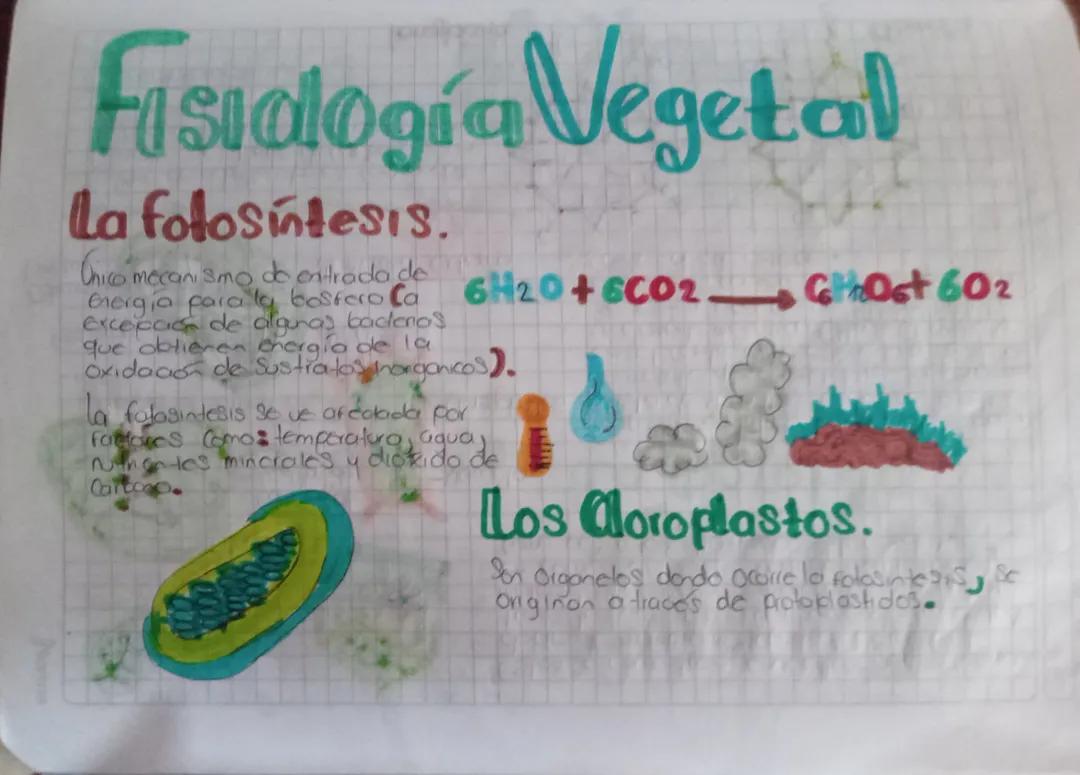 Fisiología Vegetal
La fotosíntesis.
Único mecanismo de entrada de
Energía para la bosfero (a
excepción de algunas bacterias
que obtienen energía de la
oxidación de sustratos inorganicos).
6H2O + 6CO2 → C6H12O6 + 6O2
La fotosintesis se ve afectada por
factores como: temperatura, agua,
nutrientes minerales y dióxido de
Carbono.
Los Cloroplastos.
Son Organelos donde ocorre la fotosintesis, se
originan a través de protoplastidos.